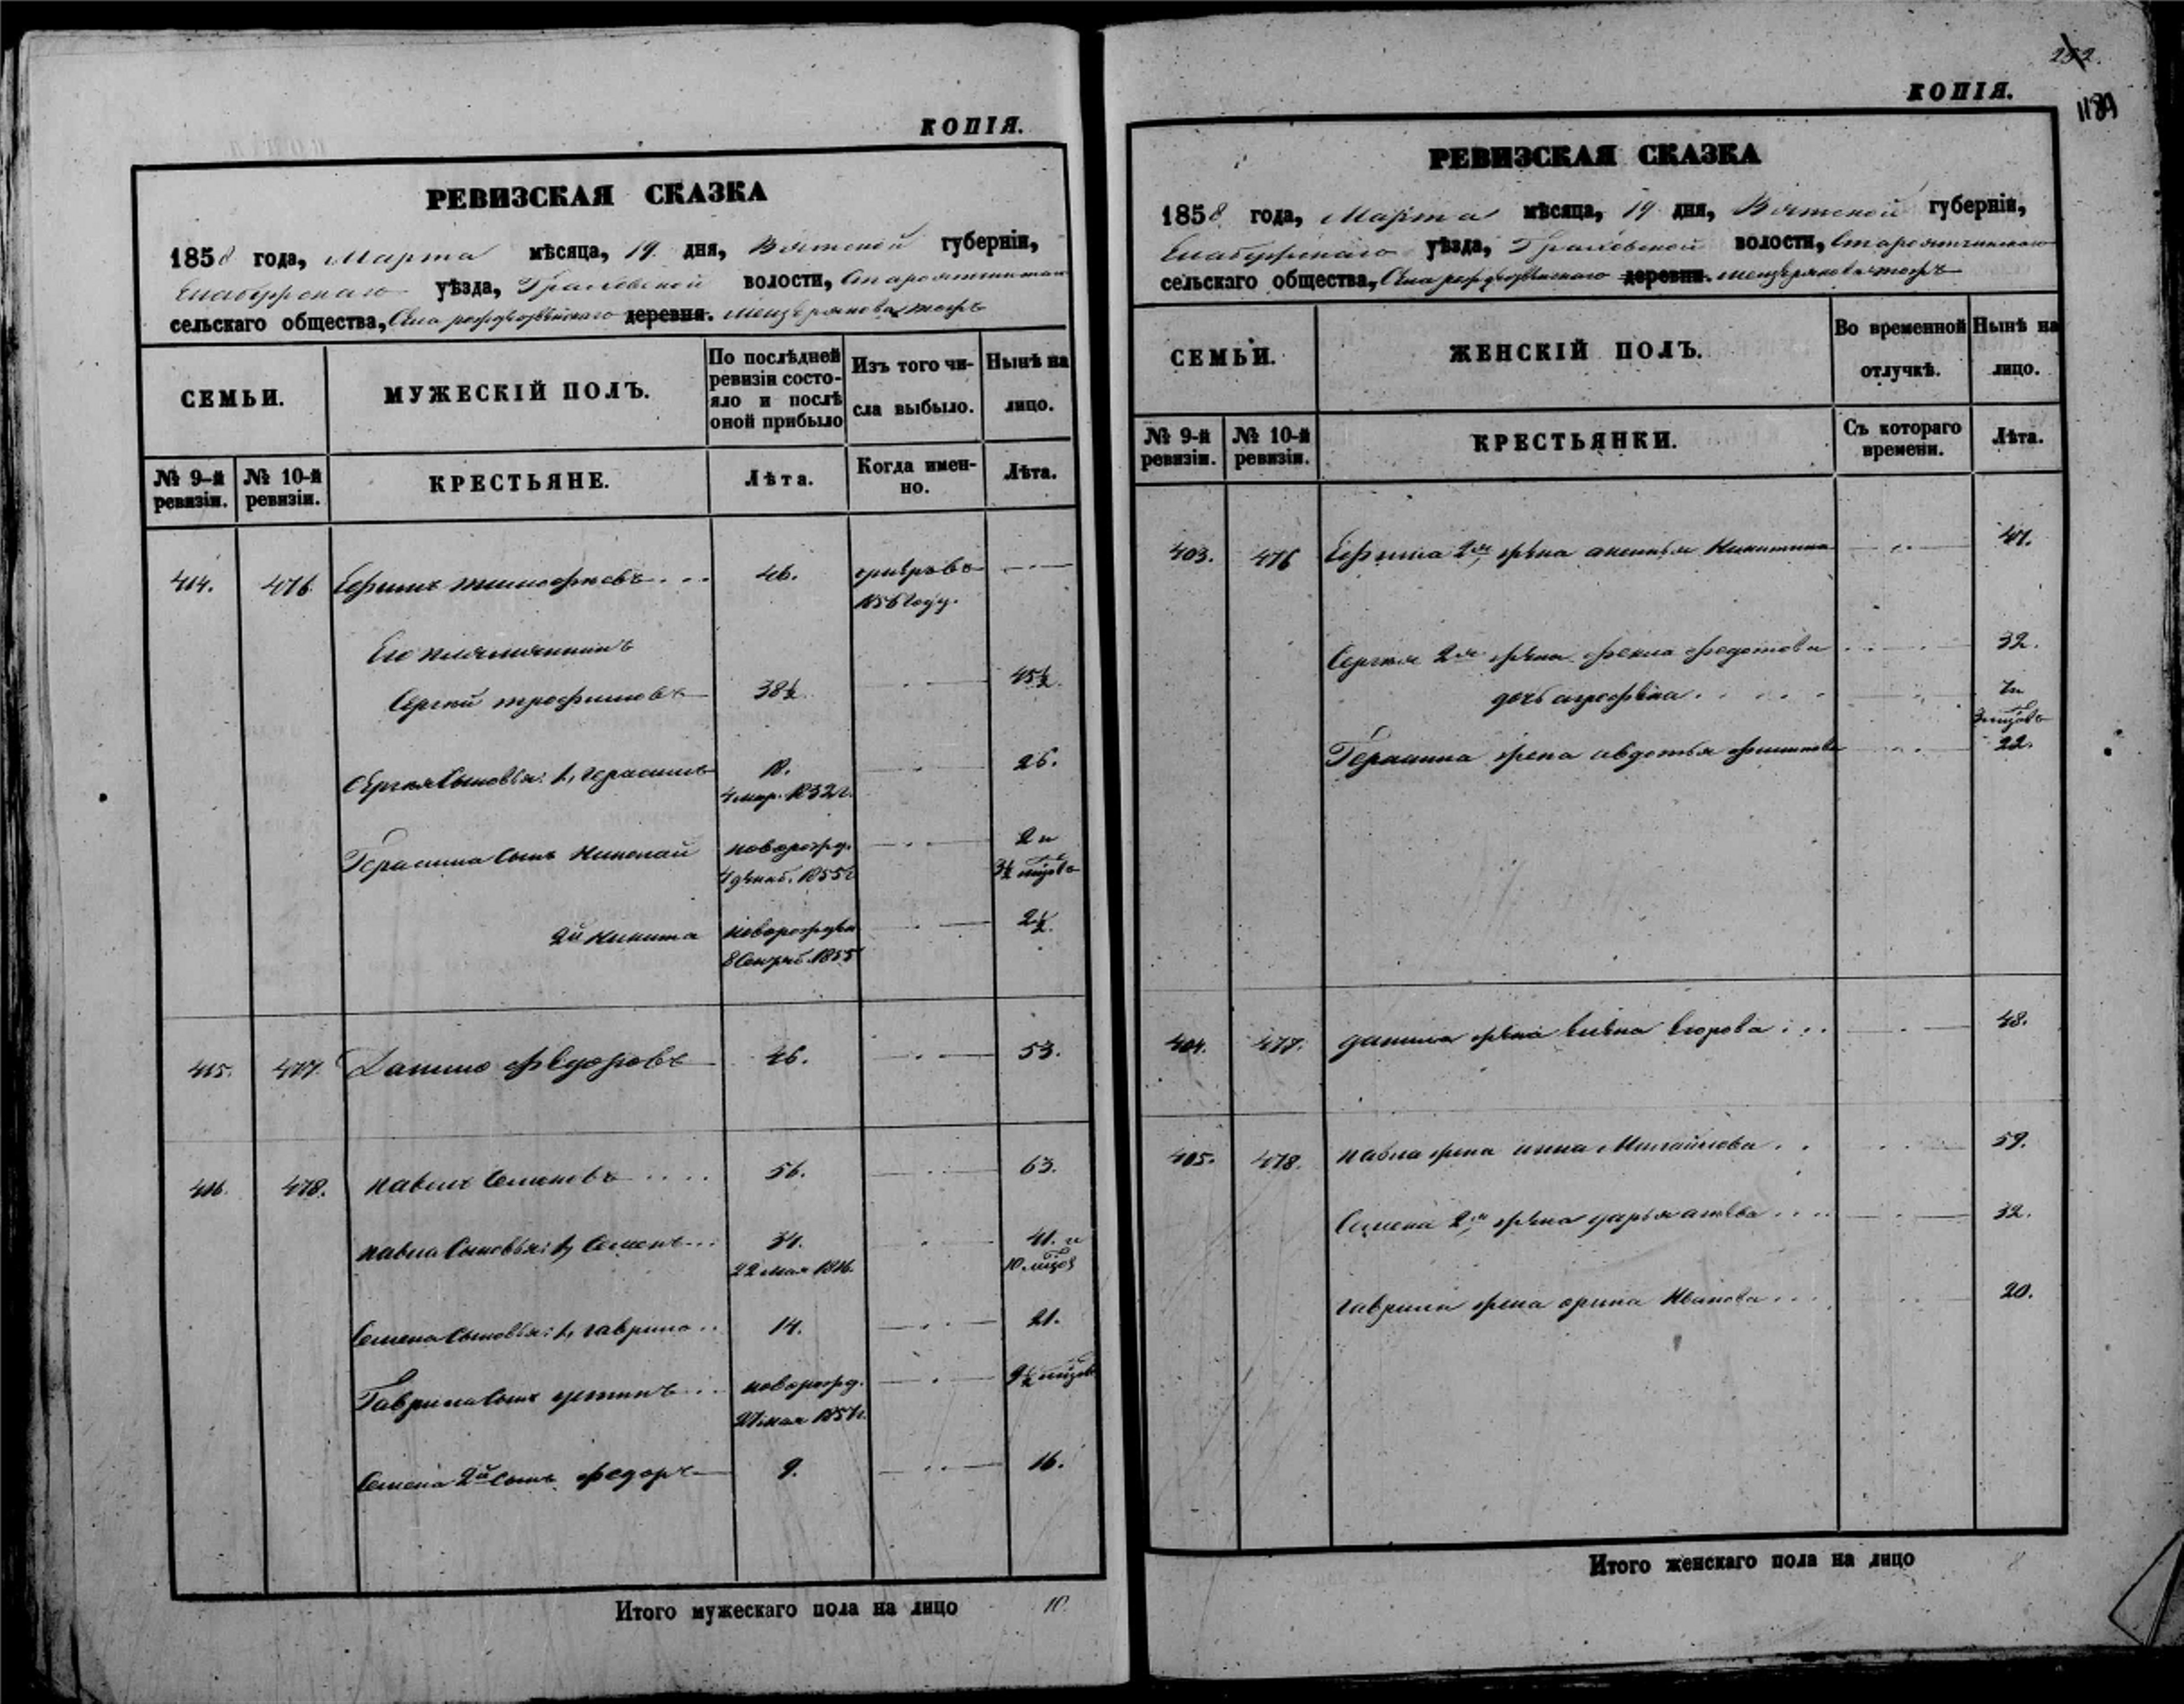 КОПІЯ.
РЕВИЗСКАЯ СКАЗКА
1858 года, Марта мѣсяца, 19 дня, Вятской губерніи,
Елабужскаго уѣзда, Граховской волости, Староятчинскаго
сельскаго общества, Села рождественскаго деревня. мещерякова тожъ
СЕМЬИ.
МУЖЕСКІЙ ПОЛЪ.
По послѣдней ревизіи состо-
яло и послѣ
оной прибыло
Изъ того чи-
сла выбыло.
Нынѣ на
лицо.
№ 9-й ревизіи.
№ 10-й ревизіи.
КРЕСТЬЯНЕ.
Лѣта.
Когда имен-
но.
Лѣта.
414. 476. Ефимъ тимофѣевъ... 46. умеръ въ
1856 году.
Его племянникъ
Сергей трофимовъ 38½ 45½.
Сергея Сыновья: 1, герасимъ 18. 26.
4 мар. 1832 г.
Герасима Сынъ Николай новорожд. 2 и
4 декаб. 1855 г. 3½ мѣсѣцовъ
2й Никита новорожден 2½.
8 Сентяб. 1855
415. 477. Данило Федоровъ 46. 53.
416. 478. павелъ Семеновъ.... 56. 63.
павла Сыновья: 1, Семенъ... 34. 41. и
22 мая 1816. 10 мѣсѣцов
Семена Сыновья: 1, гаврило.. 14. 21.
Гаврила Сынъ устинъ... новорожд. 9½ мѣсѣцовъ
27 мая 1857 г.
Семена 2й Сынъ федоръ 9. 16.
Итого мужескаго пола на лицо 10.
252.
1189
КОПІЯ.
РЕВИЗСКАЯ СКАЗКА
1858 года, Марта мѣсяца, 19 дня, Вятской губерніи,
Елабужскаго уѣзда, Граховской волости, Староятчинскаго
сельскаго общества, Села рождественскаго деревни. мещерякова тожъ
СЕМЬИ.
ЖЕНСКІЙ ПОЛЪ.
Во временной
отлучкѣ.
Нынѣ на
лицо.
№ 9-й ревизіи.
№ 10-й ревизіи.
КРЕСТЬЯНКИ.
Съ котораго
времени.
Лѣта.
403. 476 Ефима 2я жена аксинья Никитина 47.
Сергея 2я жена фекла федотова 32.
дочь агрофѣна 7 и
3 мѣсѣцовъ
Герасима жена авдотья филипова 22.
404. 477. данила жена елена Егорова... 48.
405. 478. павла жена анна Михайлова.. 59.
Семена 2я жена дарья 32.
гаврила жена орина Иванова... 20.
Итого женскаго пола на лицо 8